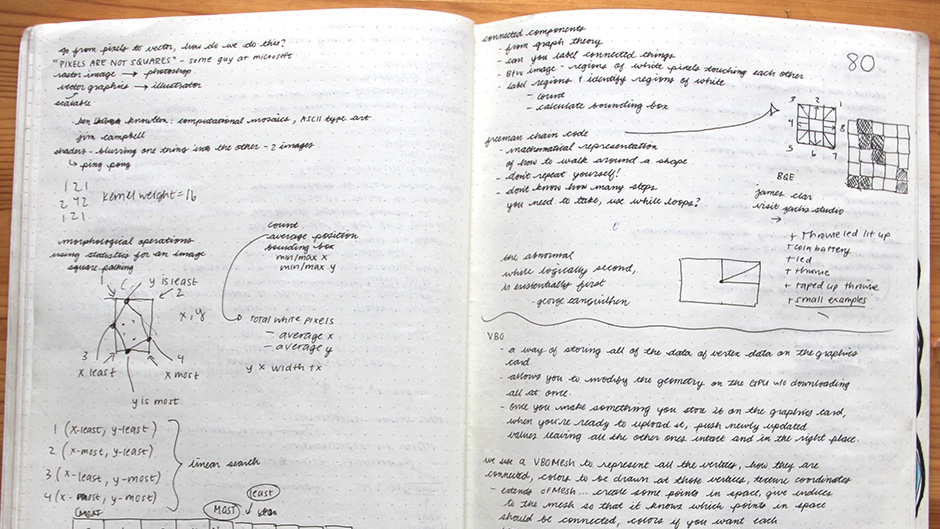 go from pixels to vector, how do we do this?
"PIXELS ARE NOT SQUARES" - some guy at microsoft
raster image → photoshop
vector graphics → illustrator
scalable
knowlton: computational mosaics, ASCII type art
jim campbell
shaders - blurring one thing into the other - 2 images
↳ ping pong
1 2 1
2 4 2
1 2 1
kernel weight = 16
morphological operations
using statistics for an image
square packing
1
y is least
2
x, y
3
x least
4
x most
y is most
count
average position
bounding box
min/max x
min/max y
total white pixels
- average x
- average y
y x width + x
1 (x-least, y-least)
2 (x-most, y-least)
3 (x-least, y-most)
4 (x-most, y-most)
linear search
least
MOST
connected components
- from graph theory
- can you label connected things
- B&W image - regions of white pixels touching each other
- label regions & identify regions of white
- count
- calculate bounding box
80
freeman chain code
- mathematical representation
of how to walk around a shape
- don't repeat yourself!
- don't know how many steps
you need to take, use while loops?
3 2 1
4 8
5 6 7
BQE
james clar
visit studio
→
+ throwie led lit up
+ coin battery
+ led
+ throwie
+ taped up throwie
+ small examples
the abnormal
while logically second,
is existentially first
- canguilhem
VBO
- a way of storing all of the data of vertex data on the graphics
card
- allows you to modify the geometry on the GPU w/o downloading
all at once.
- once you make something you store it on the graphics card,
when you're ready to upload it, push newly updated
values leaving all the other ones intact and in the right place.
we use a VBOMesh to represent all the vertices, how they are
connected, colors to be drawn at those vertices, texture coordinates
- extends OFMesh... create some points in space, give indices
to the mesh so that it knows which points in space
should be connected, colors if you want each